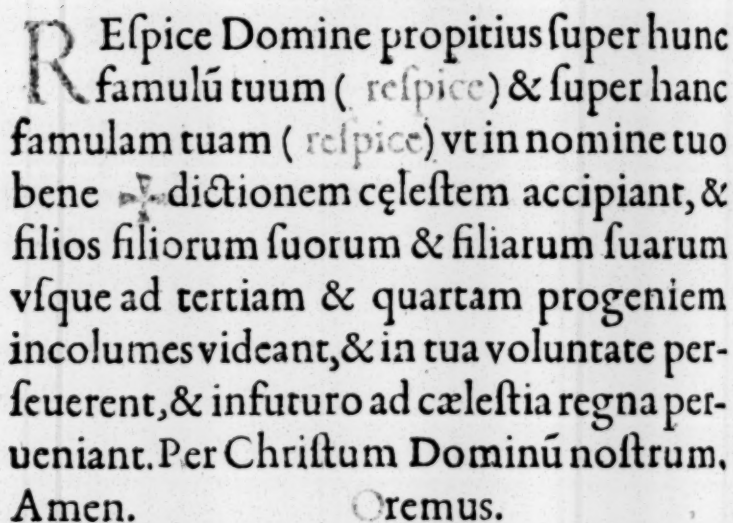 REſpice Domine propitius ſuper hunc
famulū tuum ( reſpice) & ſuper hanc
famulam tuam ( reſpice) vt in nomine tuo
bene ✠dictionem cęleſtem accipiant, &
filios filiorum ſuorum & filiarum ſuarum
vſque ad tertiam & quartam progeniem
incolumes videant,& in tua voluntate per-
ſeuerent,& infuturo ad cæleſtia regna per-
ueniant. Per Chriſtum Dominū noſtrum.
Amen. Oremus.